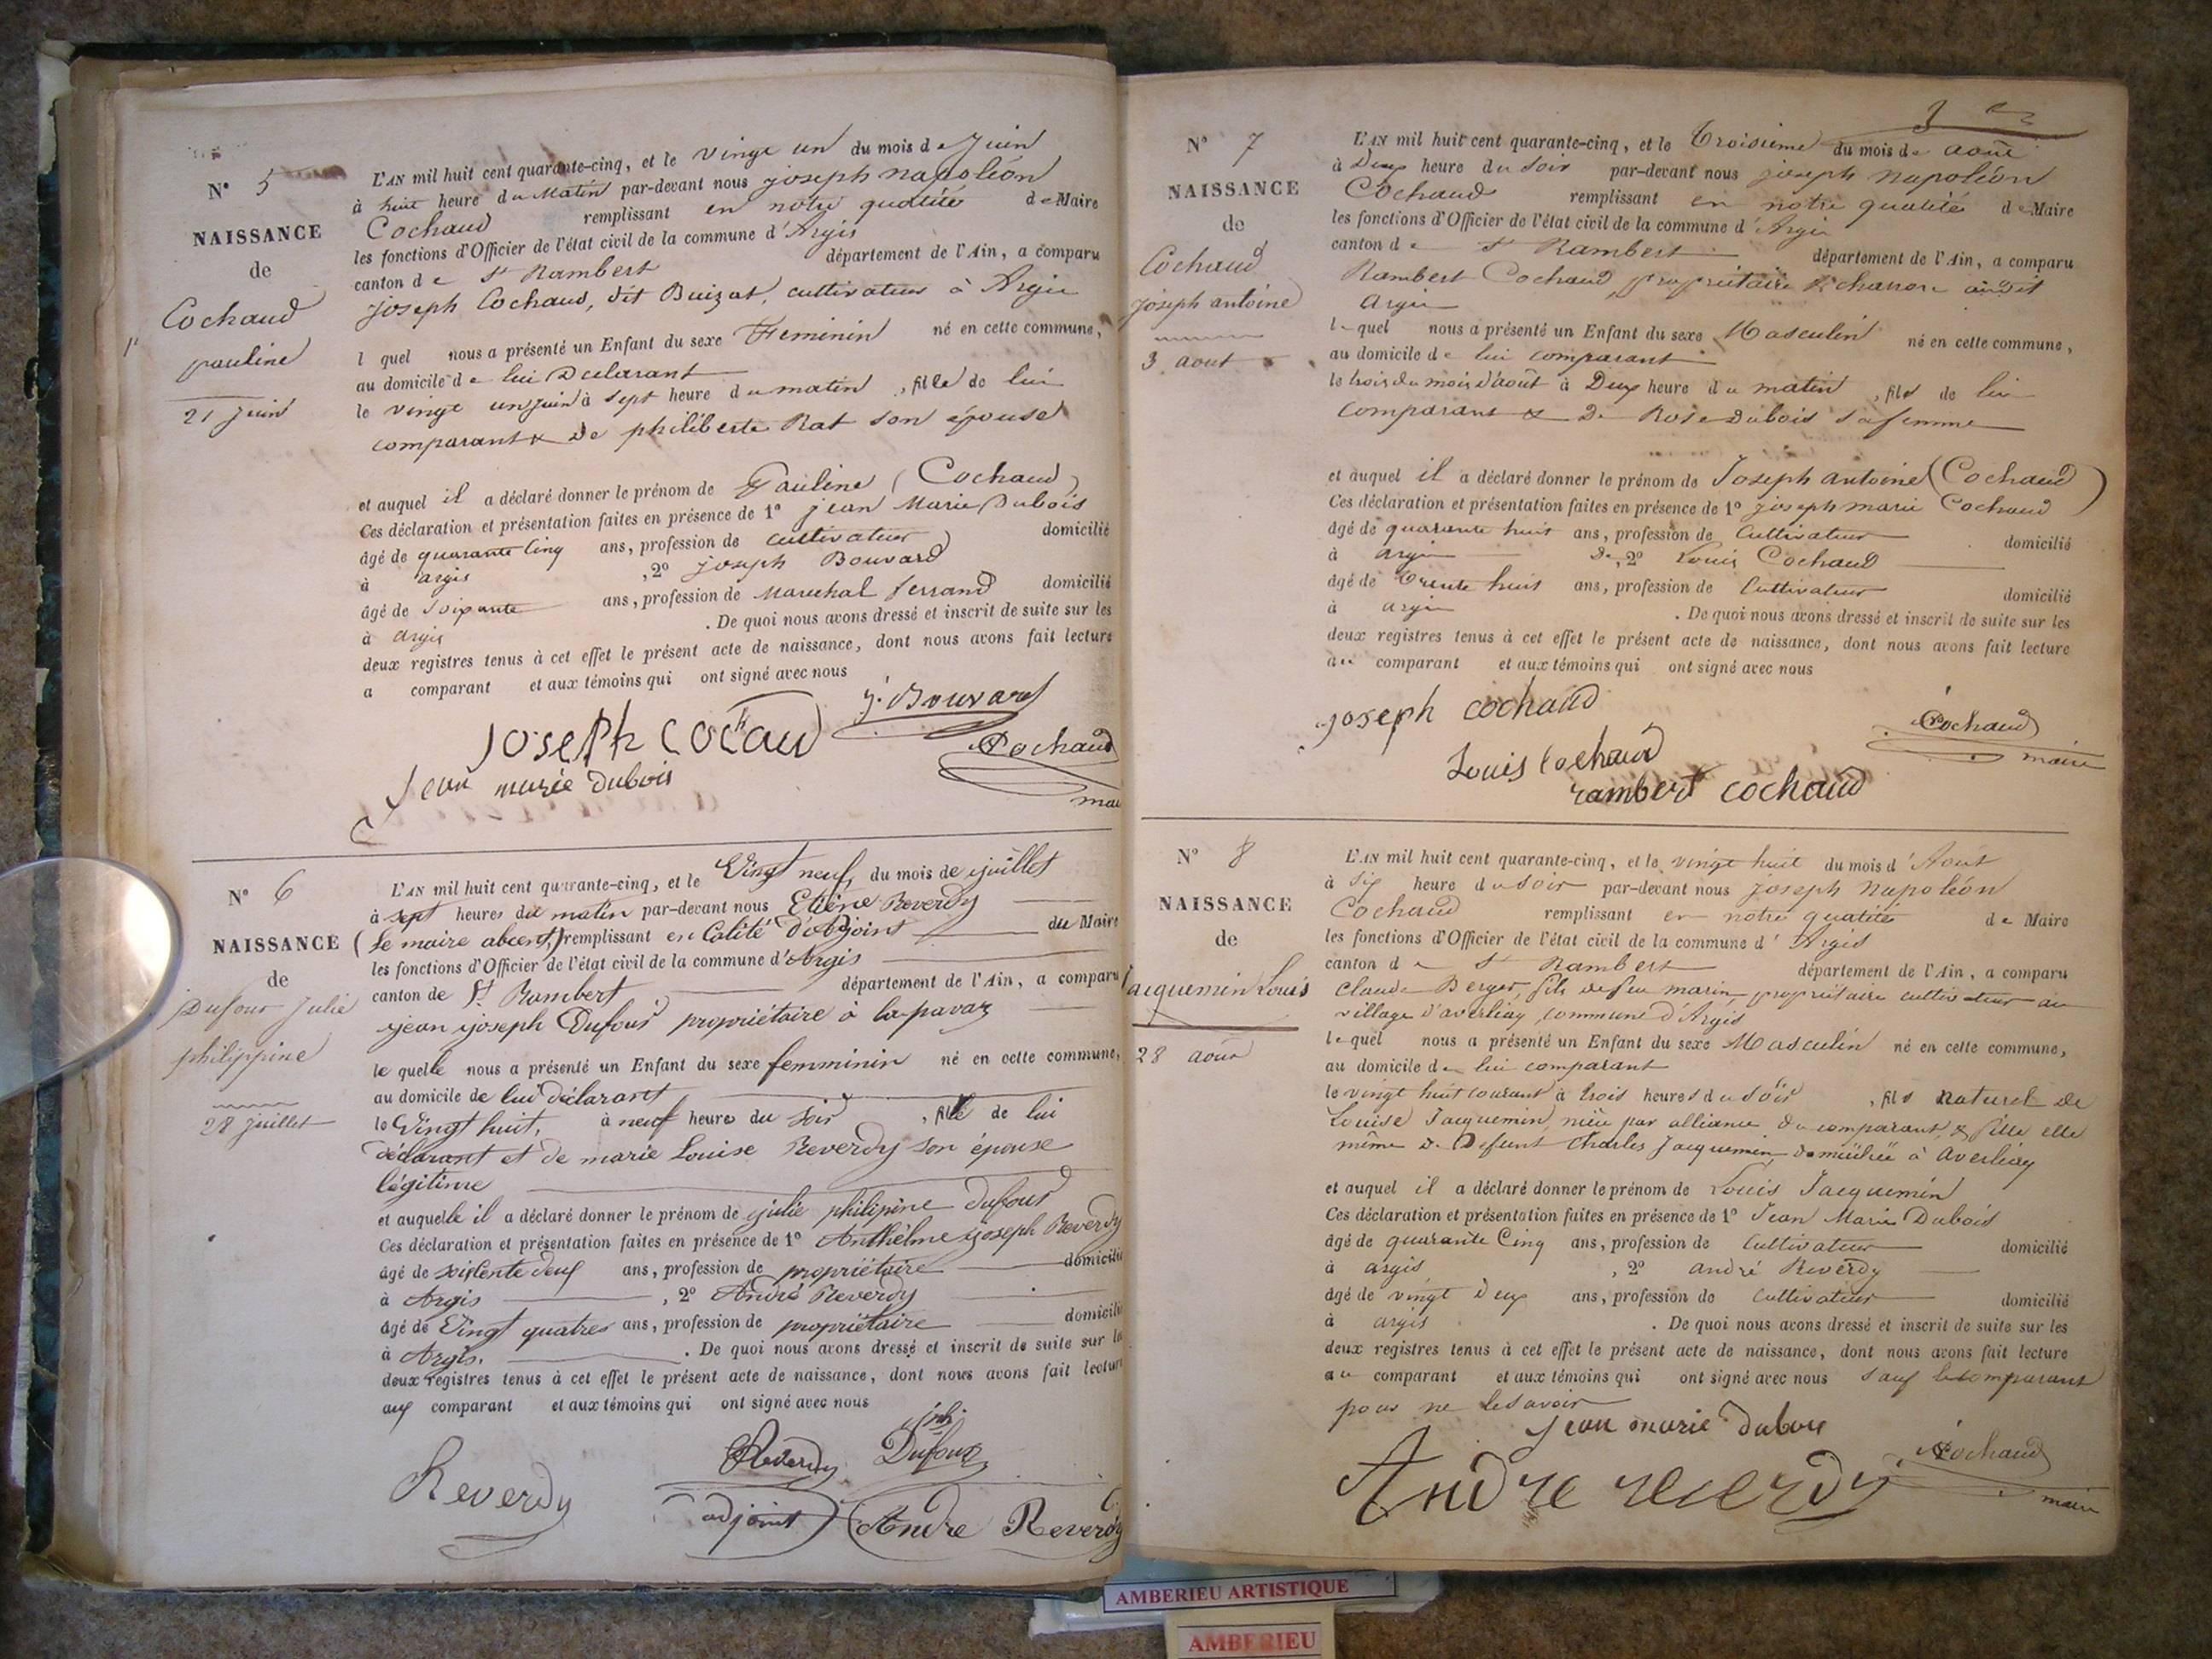 N° 5
NAISSANCE
de
Cochaud
pauline
21 juin
L'AN mil huit cent quarante-cinq, et le vingt un du mois de Juin
à huit heure du Matin par-devant nous joseph napoléon
Cochaud remplissant en notre qualité de Maire
les fonctions d'Officier de l'état civil de la commune d'Argis
canton de St Rambert département de l'Ain, a comparu
joseph Cochaud, dit Buizat, cultivateur à Argis
l quel nous a présenté un Enfant du sexe Feminin né en cette commune,
au domicile de lui Déclarant
le vingt un juin à sept heure du matin, fille de lui
comparant & de philiberte Rat son épouse
et auquel il a déclaré donner le prénom de Pauline (Cochaud)
Ces déclaration et présentation faites en présence de 1° jean Marie Dubois
âgé de quarante Cinq ans, profession de cultivateur domicilié
à argis, 2° joseph Bouvard
âgé de soixante ans, profession de Marechal ferrand domicilié
à argis. De quoi nous avons dressé et inscrit de suite sur les
deux registres tenus à cet effet le présent acte de naissance, dont nous avons fait lecture
a comparant et aux témoins qui ont signé avec nous
j. Bouvard
joseph Cochaud
Cochaud
Jean marie dubois
mai
N° 6
NAISSANCE
de
Dufour Julie
philippine
28 juillet
L'AN mil huit cent quarante-cinq, et le Vingt neuf, du mois de juillet
à sept heures du matin par-devant nous Etiène Reverdy
(Le maire abcent,) remplissant en Calité d'objoint du Maire
les fonctions d'Officier de l'état civil de la commune d'Argis
canton de St Rambert département de l'Ain, a comparu
jean joseph Dufour propriétaire à la pavaz
le quelle nous a présenté un Enfant du sexe femminin né en cette commune,
au domicile de lui déclarant
le Vingt huit, à neuf heure du soir, fille de lui
déclarant et de marie Louise Reverdy son épouse
légitime
et auquelle il a déclaré donner le prénom de julie philipine dufour
Ces déclaration et présentation faites en présence de 1° Anthelme joseph Reverdy
âgé de soixente deuf ans, profession de propriétaire domicilié
à Argis, 2° André Reverdy
âgé de Vingt quatres ans, profession de propriétaire domicilié
à Argis. De quoi nous avons dressé et inscrit de suite sur les
deux registres tenus à cet effet le présent acte de naissance, dont nous avons fait lecture
aux comparant et aux témoins qui ont signé avec nous
Reverdy Dufour
Reverdy
adjoint André Reverdy
3
N° 7
NAISSANCE
de
Cochaud
joseph antoine
3 aout
L'AN mil huit cent quarante-cinq, et le Troisieme du mois de août
à Deux heure du soir par-devant nous joseph napoléon
Cochaud remplissant en notre qualité de Maire
les fonctions d'Officier de l'état civil de la commune d'Argis
canton de St Rambert département de l'Ain, a comparu
Rambert Cochaud, propriétaire & charron audit
argis
lequel nous a présenté un Enfant du sexe Masculin né en cette commune,
au domicile de lui comparant
le trois du mois d'août à Deux heure du matin, fils de lui
comparant & De Rose Dubois sa femme
et auquel il a déclaré donner le prénom de Joseph antoine (Cochaud)
Ces déclaration et présentation faites en présence de 1° joseph marie Cochaud
âgé de quarante huit ans, profession de Cultivateur domicilié
à argis De, 2° Louis Cochaud
âgé de trente huit ans, profession de Cultivateur domicilié
à argis. De quoi nous avons dressé et inscrit de suite sur les
deux registres tenus à cet effet le présent acte de naissance, dont nous avons fait lecture
au comparant et aux témoins qui ont signé avec nous
joseph cochaud
Cochaud
maire
Louis Cochaud
rambert cochaud
N° 8
NAISSANCE
de
Jacquemin Louis
28 août
L'AN mil huit cent quarante-cinq, et le vingt huit du mois d'Août
à six heure du soir par-devant nous joseph napoléon
Cochaud remplissant en notre qualité de Maire
les fonctions d'Officier de l'état civil de la commune d'Argis
canton de St Rambert département de l'Ain, a comparu
Claude Berger, fils de feu marin, propriétaire cultivateur au
village d'averliay, commune d'Argis
lequel nous a présenté un Enfant du sexe Masculin né en cette commune,
au domicile de lui comparant
le vingt huit courant à trois heures du soir, fils naturel de
Louise Jacquemin, nièce par alliance du comparant, & fille elle
même de Defunt Charles Jacquemin, domiciliée à averliay
et auquel il a déclaré donner le prénom de Louis Jacquemin
Ces déclaration et présentation faites en présence de 1° Jean Marie Dubois
âgé de quarante Cinq ans, profession de Cultivateur domicilié
à argis, 2° andré Reverdy
âgé de vingt Deux ans, profession de Cultivateur domicilié
à argis. De quoi nous avons dressé et inscrit de suite sur les
deux registres tenus à cet effet le présent acte de naissance, dont nous avons fait lecture
au comparant et aux témoins qui ont signé avec nous sauf le comparant
pour ne le savoir
Jean marie dubois
Cochaud
maire
André reverdy
AMBERIEU ARTISTIQUE
AMBERIEU